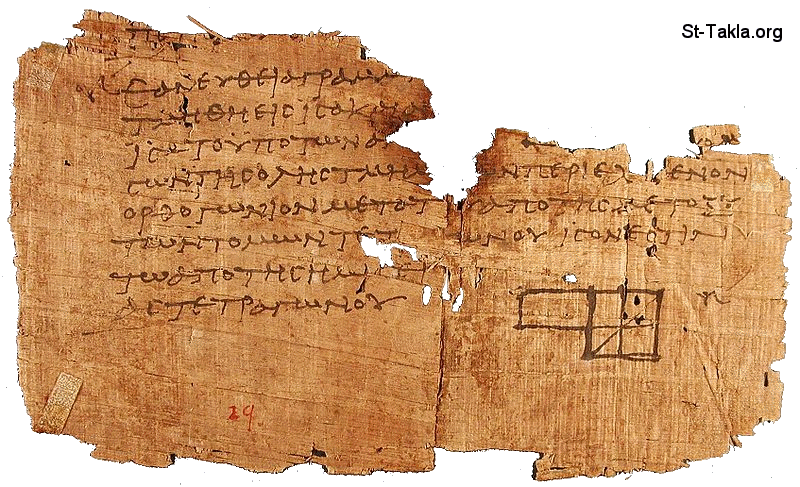 St-Takla.org
ΕΑΝ ΕΥΘΕΙΑ ΓΡΑΜΜ
ΤΜΗΘΗ ΕΙϹ ΙϹΑ ΚΑΙ Α
ΙϹΑ ΤΟ ΥΠΟ ΤΩΝ Α
ϹΩΝ ΤΗϹ ΟΛΗϹ ΤΜΗΜ ΩΝ ΠΕΡΙΕΧ ΜΕΝΟΝ
ΟΡΘΟΓΩΝΙΟΝ ΜΕΤΑ Τ Υ ΑΠΟ ΤΗϹ ΜΕΤΟΞΥ
ΤΩΝ ΤΟΜΩΝ ΤΕΤ ΩΝΟΥ ΙϹΟΝ ΕϹΤΙΝ
ΤΩ ΑΠΟ ΤΗϹ ΗΜΙϹΕΙ
ΑϹ ΤΕΤΡΑΓΩΝΟΥ
29